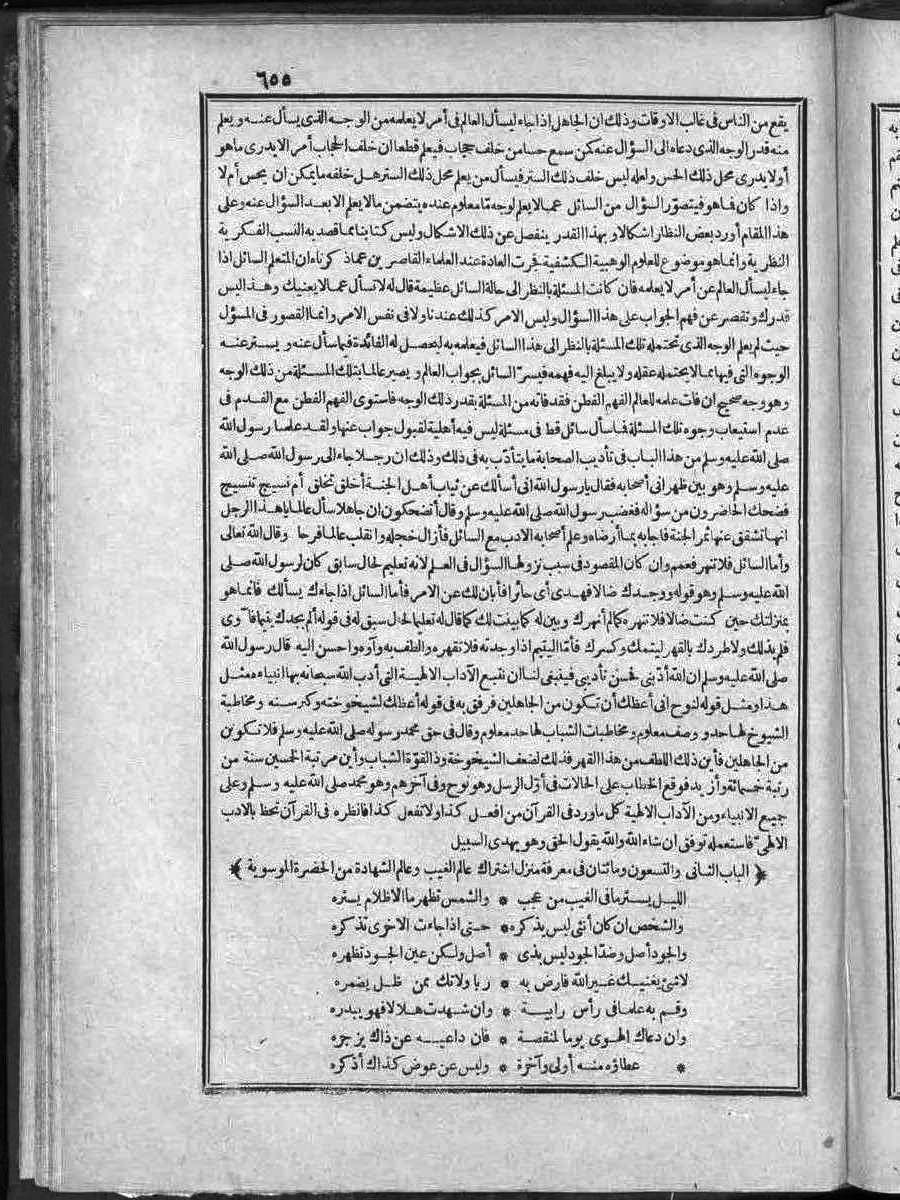 ٦٥٥
يقع من الناس فى غالب الاوقات وذلك ان الجاهل اذا جاء ليسأل العالم فى أمر لا يعلمه من الوجه الذى يسأل عنه ويعلم
منه قدر الوجه الذى دعاه الى السؤال عنه كن سمع حسا من خلف حجاب فيعلم قطعا ان خلف الحجاب أمر الا يدرى ما هو
أولا يدرى محل ذلك الحس ولعله ليس خلف ذلك الستر فيسأل من يعلم محل ذلك الستر هل خلفه ما يمكن ان يحس أم لا
واذا كان فما هو فيتصوّر السؤال من السائل عما لا يعلم لوجه مّا معلوم عنده يتضمن ما لا يعلم الا بعد السؤال عنه وعلى
هذا المقام أورد بعض النظار اشكالا وبهذا القدر ينفصل عن ذلك الاشكال وليس كتابنا مما قصد به النسب الفكرية
النظرية وانما هو موضوع للعلوم الوهبية الكشفية فجرت العادة عند العلماء القاصرين عماذكرناه ان المتعلم السائل اذا
جاء ليسأل العالم عن أمر لا يعلمه فان كانت المسئلة بالنظر الى حالة السائل عظيمة قال له لا تسأل عما لا يعنيك وهذا ليس
قدرك وتقصر عن فهم الجواب على هذا السؤال وليس الامر كذلك عندنا ولا فى نفس الامر وانما القصور فى المسؤل
حيث لم يعلم الوجه الذى تحتمله تلك المسئلة بالنظر الى هذا السائل فيعلمه به ليحصل له الفائدة فيما سأل عنه ويستر عنه
الوجوه التى فيها مما لا يحتمله عقله ولا يبلغ اليه فهمه فيسرّ السائل بجواب العالم ويصير عالما بتلك المسئلة من ذلك الوجه
وهو وجه صحيح ان فات علمه للعالم الفهم الفطن فقد فاته من المسئلة بقدر ذلك الوجه فاستوى الفهم الفطن مع الفدم فى
عدم استيعاب وجوه تلك المسئلة فما سأل سائل قط فى مسئلة ليس فيه أهلية لقبول جواب عنها ولقد علمنا رسول الله
صلى الله عليه وسلم من هذا الباب فى تأديب الصحابة ما يتأدّب به فى ذلك وذلك ان رجلا جاء الى رسول الله صلى الله
عليه وسلم وهو بين ظهرانى أصحابه فقال يا رسول الله انى أسألك عن ثياب أهل الجنة أخلق تخلق أم نسيج تنسيج
فضحك الحاضرون من سؤاله فغضب رسول الله صلى الله عليه وسلم وقال أتضحكون ان جاهلا سأل عالما يا هذا الرجل
انها تشقق عنها ثمر الجنة فاجابه بما أرضاه وعلم أصحابه الادب مع السائل فأزال خجله وانقلب عالما فرحا وقال الله تعالى
وأما السائل فلا تنهر فعمم وان كان المقصود فى سبب نزولها السؤال فى العلم لانه تعليم لحال سابق كان لرسول الله صلى
الله عليه وسلم وهو قوله ووجدك ضالا فهدى أى حائرا فأبان لك عن الامر فأما السائل اذا جاءك يسألك فانما هو
بمنزلتك حين كنت ضالا فلا تنهره كما لم أنهرك وبين له كما بينت لك كما قال له تعليما لحال سبق له فى قوله ألم يجدك يتيما فآوى
فلم يذلك ولا طردك بالقهر ليتمك وكسرك فأمّا اليتيم اذا وجدته فلا تقهره والطف به وآوه وأحسن اليه قال رسول الله
صلى الله عليه وسلم ان الله أدّبنى فحسن تأديبى فينبغى لنا ان نتبع الآداب الالهية التى أدب الله سبحانه بها انبياءه مثل
هذا ومثل قوله لنوح انى أعظك أن تكون من الجاهلين فرفق به فى قوله أعظك لشيخوخته وكبر سنه ومخاطبة
الشيوخ لها حد ووصف معلوم ومخاطبات الشباب لها حد معلوم وقال فى حق محمد رسوله صلى الله عليه وسلم فلا تكونن
من الجاهلين فأين ذلك اللطف من هذا القهر فذلك لضعف الشيخوخة وذا لقوّة الشباب وأين مرتبة الخمسين سنة من
رتبة خمسمائة وأزيد فوقع الخطاب على الحالات فى أوّل الرسل وهو نوح وفى آخرهم وهو محمد صلى الله عليه وسلم وعلى
جميع الانبياء ومن الآداب الالهية كل ما ورد فى القرآن من افعل كذا ولا تفعل كذا فانظره فى القرآن تحظ بالادب
الالهىّ فاستعمله توفق ان شاء الله والله يقول الحق وهو يهدى السبيل
﴿ الباب الثانى والتسعون ومائتان فى معرفة منزل اشتراك عالم الغيب وعالم الشهادة من الحضرة الموسوية ﴾
الليل يستر ما فى الغيب من عجب * والشمس تظهر ما الاظلام يستره
والشخص ان كان أنثى ليس يذكره * حتى اذا جاءت الاخرى تذكره
والجود أصل وضدّ الجود ليس بذى * أصل ولكن عين الجود تظهره
لا شئ يغنيك غير الله فارض به * ربا ولا تك ممن ظل يضمره
وقم به علما فى رأس رابية * وان شهدت هلالا فهو يبدره
وان دعاك الهوى يوما لمنقصة * فان داعيه عن ذاك يزجره
* عطاؤه منه أولى وآخرة * وليس عن عوض كذاك أذكره